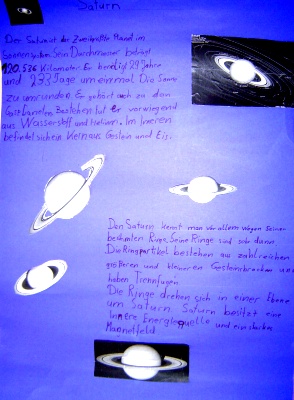 Saturn
Der Saturn ist der Zweitgrößte Planet im
Sonnensystem. Sein Durchmesser beträgt
120.536 Kilometer. Er benötigt 29 Jahre
und 233 Tage um einmal Die Sonne
zu umrunden. Er gehört auch zu den
Gasplaneten. Bestehen tut er vorwiegend
aus Wasserstoff und Helium. Im Inneren
befindet sich ein Kern aus Gestein und Eis.
Den Saturn kennt man vor allem wegen Seinen
berühmten Ringe. Seine Ringe sind sehr dünn.
Die Ringpartikel bestehen aus zahlreichen
größeren und kleineren Gesteinsbrocken und
haben Trennfugen.
Die Ringe drehen sich in einer Ebene
um Saturn. Saturn besitzt eine
Innere Energiequelle und ein starkes
Magnetfeld